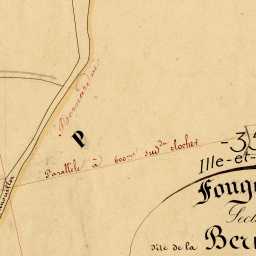 P
Parallèle à 600m sud du clocher
-35
Ille-et-
Foug
Sect
dite de la Ber